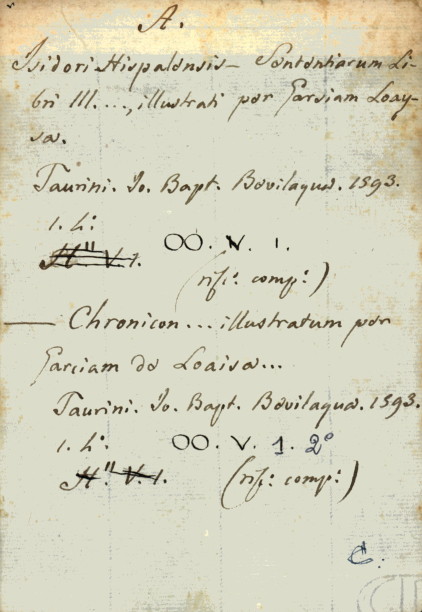 A.
Isidori Hispalensis — Sententiarum Li-
bri III...., illustrati per Garsiam Loay-
sa.
Taurini. Io. Bapt. Bevilaqua. 1593.
1. 4:
H" V. 1. OO. V. 1.
(rif: comp:)
— Chronicon... illustratum per
Garciam de Loaisa...
Taurini. Io. Bapt. Bevilaqua. 1593.
1. 4: OO. V. 1. 2°
H" V. 1. (rif: comp:)
C.